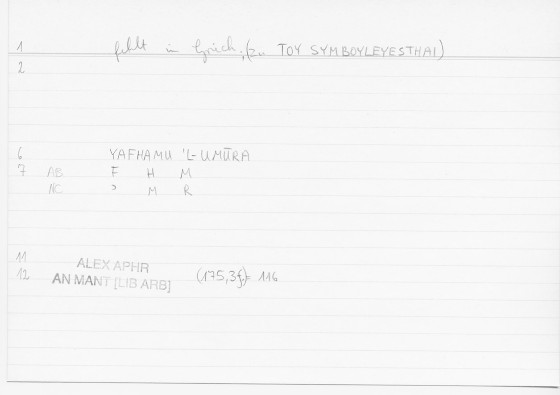 1 fehlt in Griech. (zu TOY SYMBOYLEYESTHAI)
2
6 YAFHAMU 'L-UMŪRA
7 AB F H M
NC ' M R
11
ALEX APHR
12 AN MANT [LIB ARB] (175,3f) = 116